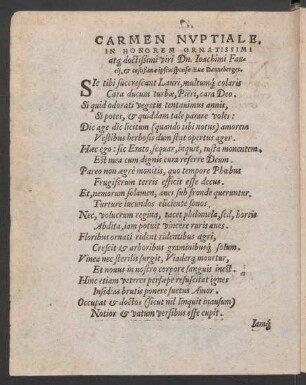 CARMEN NVPTIALE,
IN HONOREM ORNATISSIMI
atq; doctißimi viri Dn. Ioachimi Fau-
cij, & castißimæ ipsius sponsæ Euæ Danneberges.
SIc tibi succrescant Lauri, multumq́; colaris
Cara ducum turbæ, Pieri, cara Deo.
Si quid odorati vegetis tentauimus annis,
Si potes, & quiddam tale parare voles:
Dic age dic licitum (quando tibi notus) amorem
Vestibus herbosis dum stat opertus ager.
Hæc ego: sic Erato, sequar, inquit, iusta monentem
Est mea cum dignis cura referre Deum.
Pareo non agrè monitis, quo tempore Phœbus
Frugiferum terris efficit esse decus.
Et, nemorum solamen, aues sub fronde queruntur
Turture iucundos eliciente sonos.
Nec, volucrum regina, tacet philomela, sed, hortis
Abdita, iam potuit vincere ruris aues.
Floribus ornati rident ridentibus agri,
Crescit & arboribus graminibusq́; solum.
Vinea nec sterilis surgit, Viadérq́; mouetur,
Et nouus in nostro corpore sanguis inest.
Hinc etiam veteres persæpe resuscitat ignes
Insidias brutis ponere suetus Amor.
Occupat & doctos (sicut nil linquit inausum)
Notior & vatum versibus esse cupit.
Iamq́;